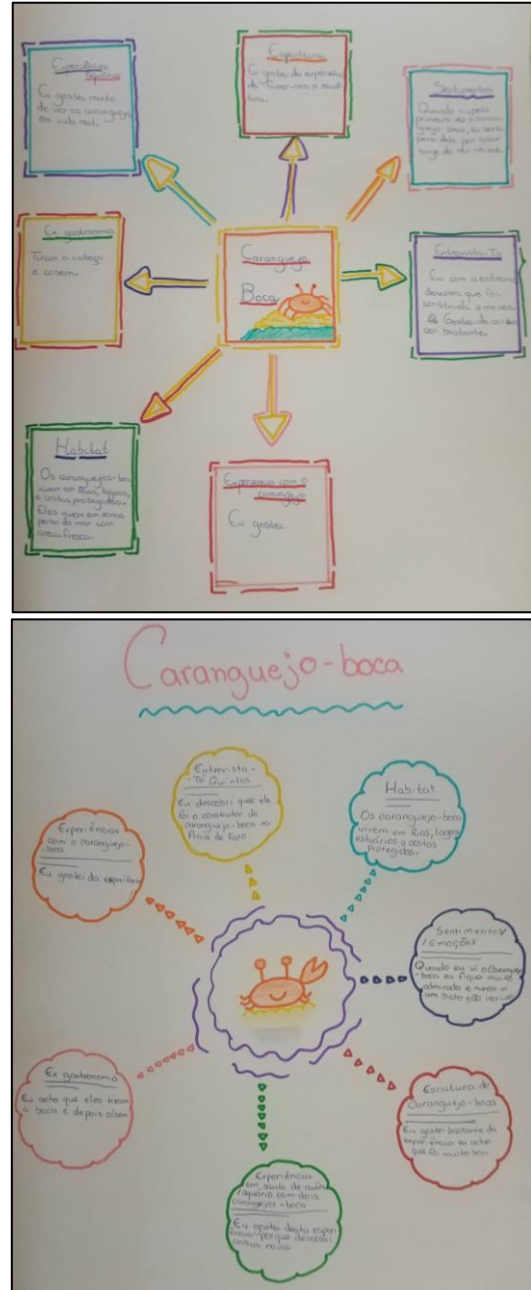 Experiência
Eu gostei muito
de ver os caranguejos
em vida real.
Escultura
Eu gostei da experiência
de fazer-mos a escul
tura.
Sentimentos
Quando vi pela
primeira vez o caran
guejo-boca, eu senti
pena dele por estar
longe do seu habitat.
Ex gastronomia
Tiram a cabeça
e cosem.
Caranguejo
Boca
Entrevista-Té
Eu com a entrevista
descobri que foi
construída
Gostei de
cer bastante.
Habitat
Os caranguejos-boca
vivem em Rias, lagoas,
e costas protegidas.
Eles vivem em zonas
perto do mar com
areia fresca.
Experiencia com o
caranguejo
Eu gostei
Caranguejo-boca
Entrevista-
-Té Quintas
Eu descobri que ele
foi o construtor do
caranguejo-boca na
Praia de Faro
Habitat
Os caranguejo-boca
vivem em Rias,
estuários e costas
protegidas.
Experiências
com o caranguejo-
-boca
Eu gostei da experiência
Sentimentos
/Emoções
Quando eu vi o Caranguejo
boca eu fiquei muito
admirado e nunca vi
um bicho tão incrível
Ex gastronomia
Eu acho que eles tiram
a boca e depois
Escutura do
Caranguejo-boca
Eu gostei bastante da
experiência eu acho
que foi muito bom
Experiência
em sala de aula
/aquário com dois
carangejos-boca
Eu gostei desta exper
iência porque descobri
coisas novas